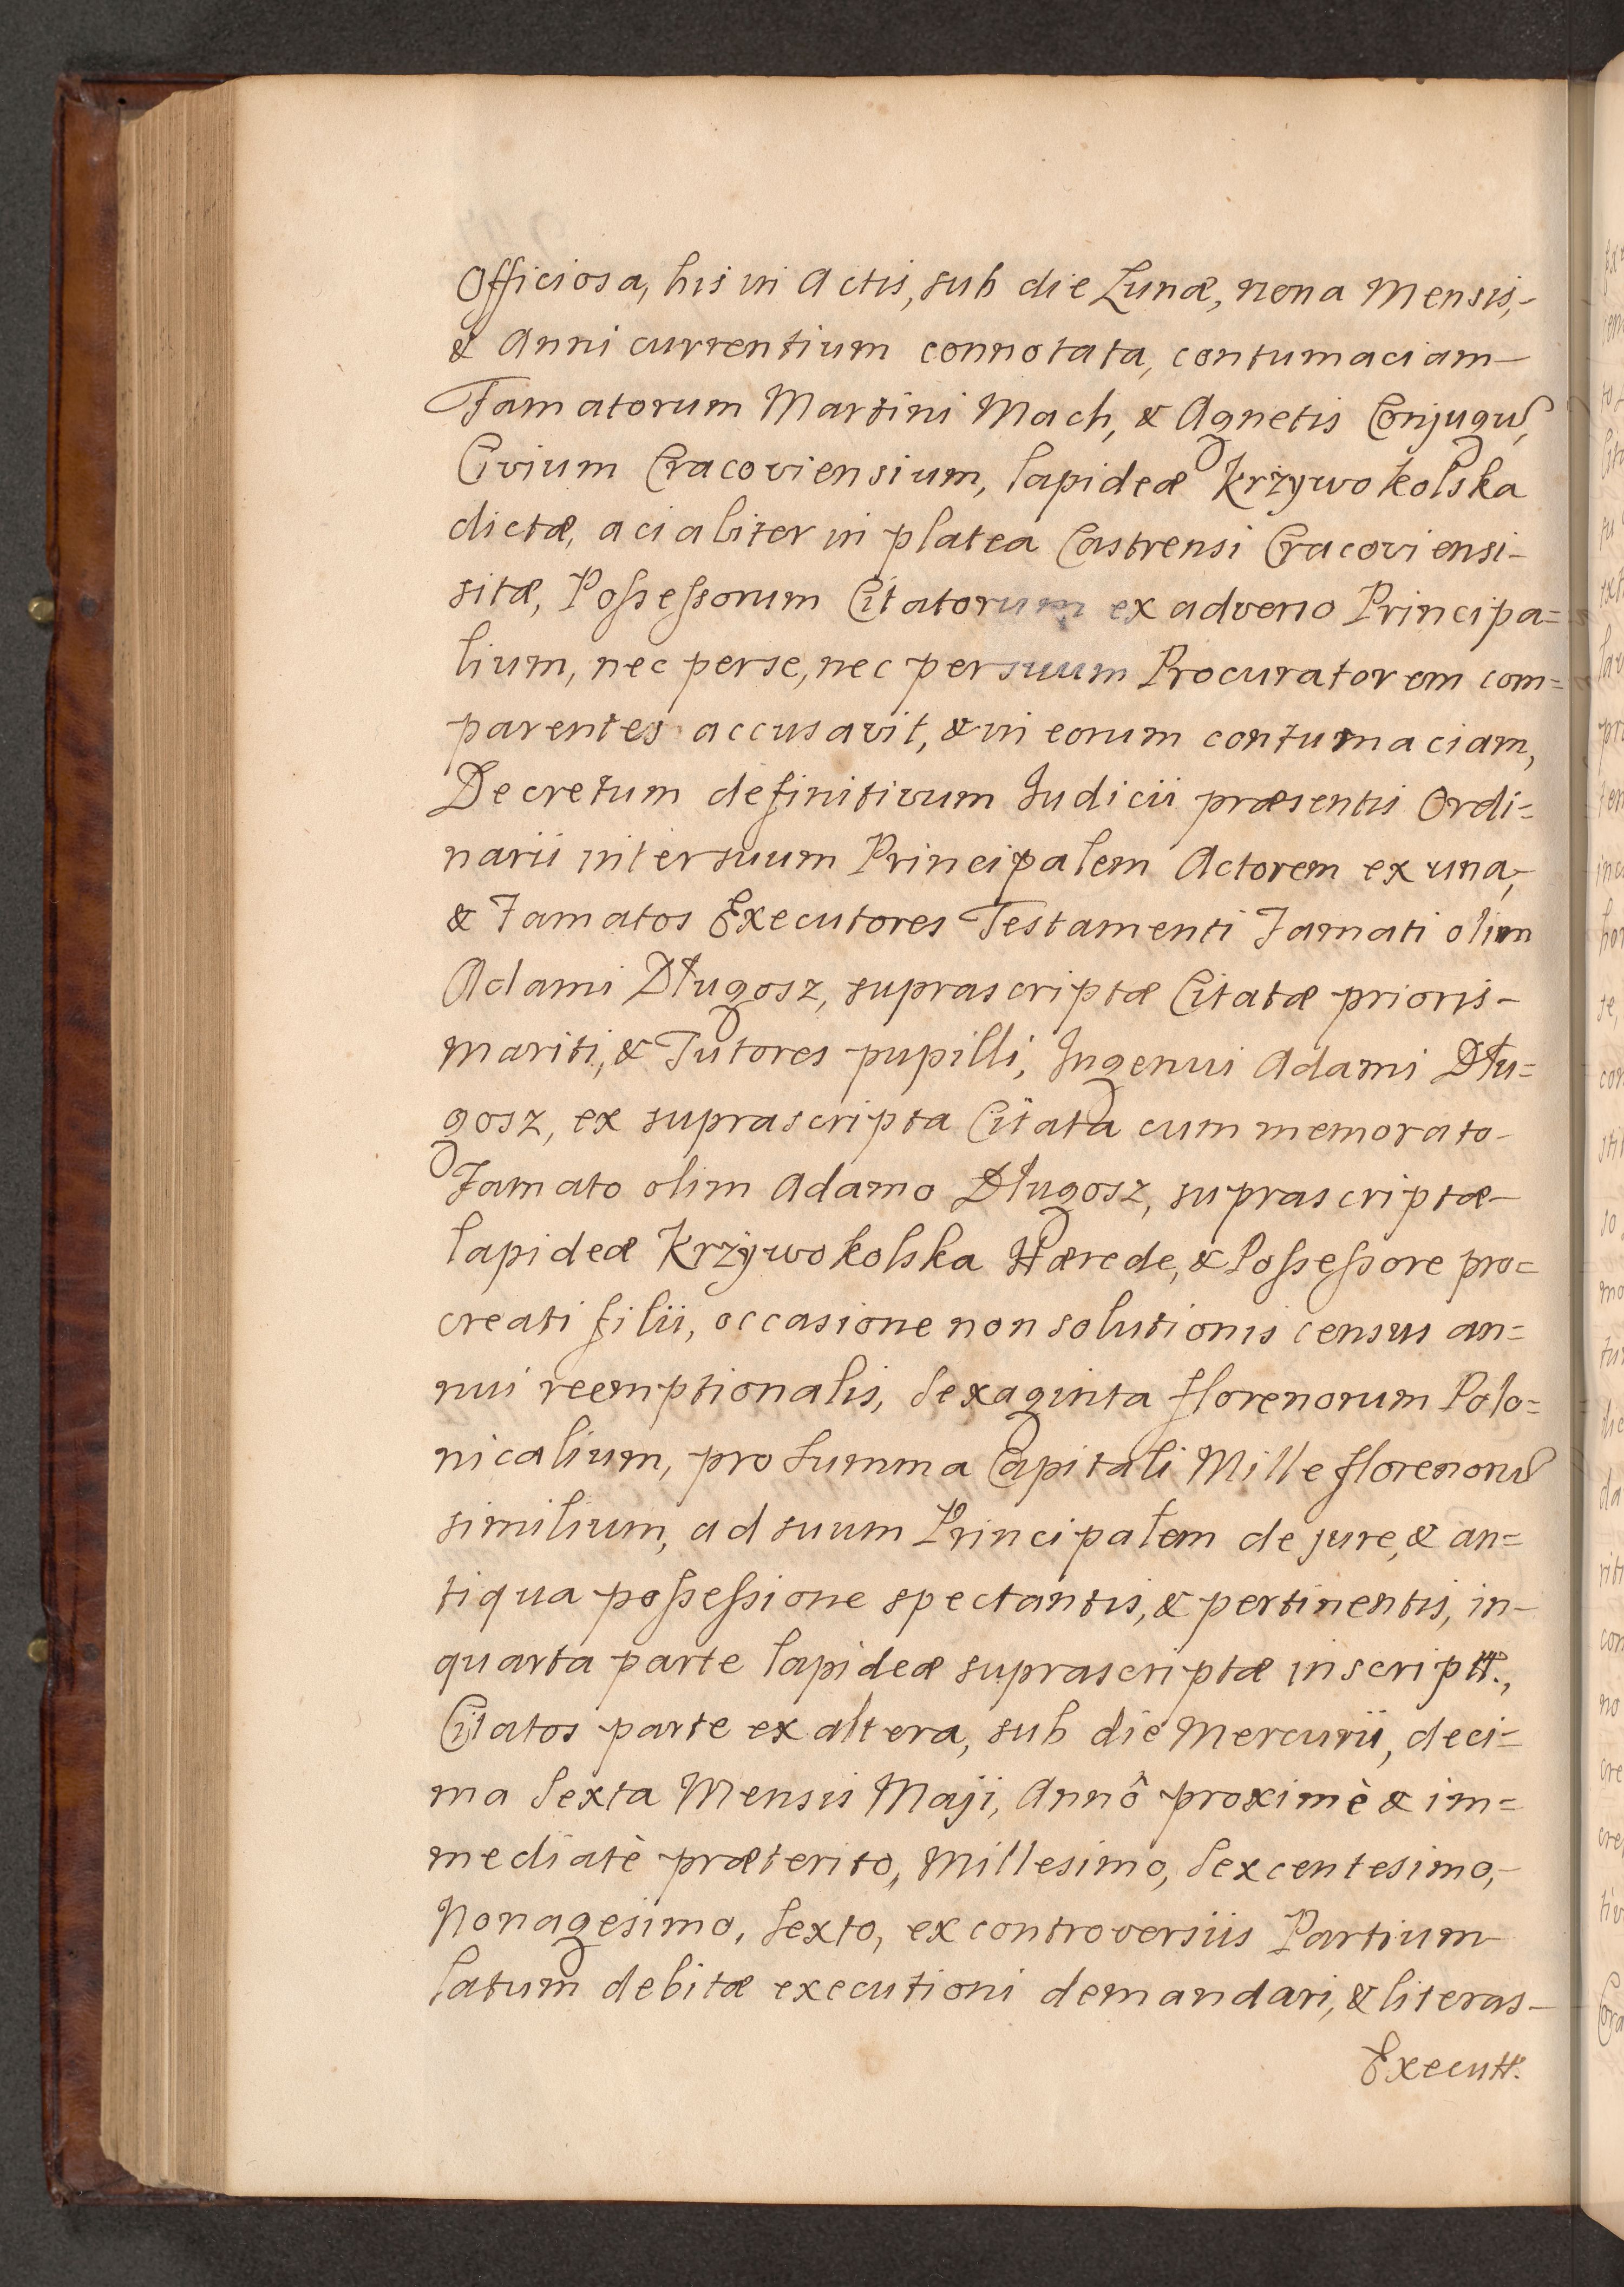 Officiosa, his in Actis, sub die Lunæ, nona Mensis,-
& Anni currentium connotata, contumaciam-
Famatorum Martini Mach, & Agnetis Conjugũ,
Civium Cracoviensium, lapideæ Krzywokolska
dictæ, acialiter in platea Castrensi Cracoviensi-
sitæ, Possessorum Citatorum ex adverso Principa=
lium, nec per se, nec per suum Procuratorem com=
parentes accusavit, & in eorum contumaciam,
Decretum definitivum Judicii præsentis Ordi=
narii inter suum Principalem Actorem ex una,-
& Famatos Executores Testamenti Famati olim
Adami Długosz, suprascriptæ Citatæ prioris-
mariti, & Tutores pupilli, Ingenui Adami Dłu=
gosz, ex suprascripta Citata cum memorato-
Famato olim Adamo Długosz, suprascriptæ-
lapideæ Krzywokolska Hærede, & Possessore pro=
creati filii, occasione non solutionis census an=
nui reemptionalis, Sexaginta florenorum Polo=
nicalium, pro Summa Capitali Mille florenorũ
similium, ad suum Principalem de jure, & an=
tiqua possessione spectantis, & pertinentis, in-
quarta parte lapideæ suprascriptæ inscriptt.,
Citatos parte ex altera, sub die Mercurii, deci=
ma Sexta Mensis Maji, Annô proximè & im=
mediatè præterito, Millesimo, Sexcentesimo,-
Nonagesimo, Sexto, ex controversiis Partium-
latum debitæ executioni demandari, & literas-
Executt.